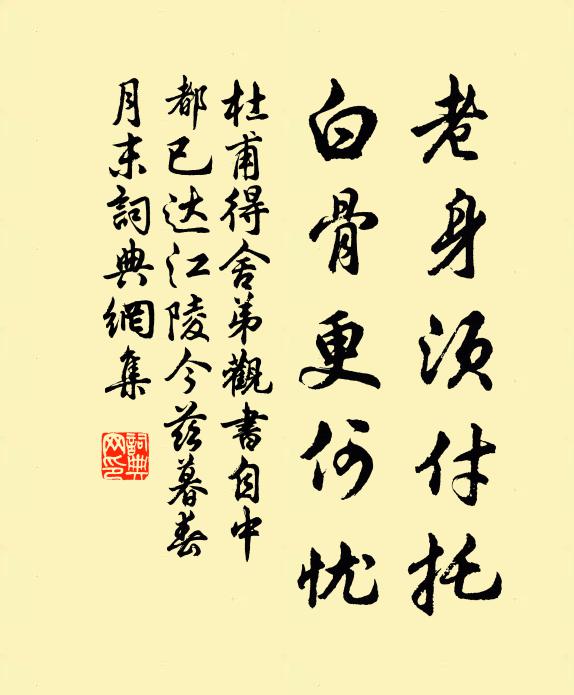 老身须付托
白骨更何忧
杜甫得舍弟觀書自中
都已达江陵今茲暮春
月末詞典網集
詞典
网印